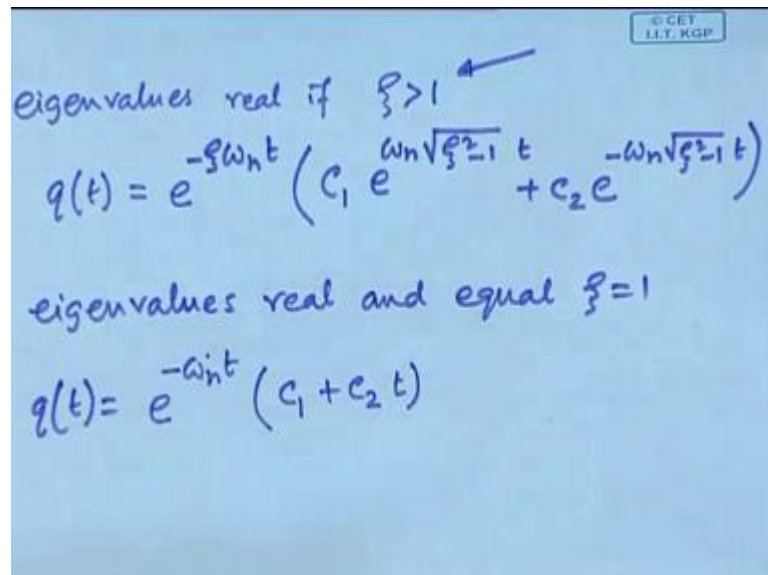 © CET
I.I.T. KGP
eigenvalues real if ξ>1
q(t) = e^{-ξω_n t} (C_1 e^{ω_n√(ξ²-1) t} + C_2 e^{-ω_n√(ξ²-1) t})
eigenvalues real and equal ξ=1
q(t) = e^{-ω_n t} (C_1 + C_2 t)